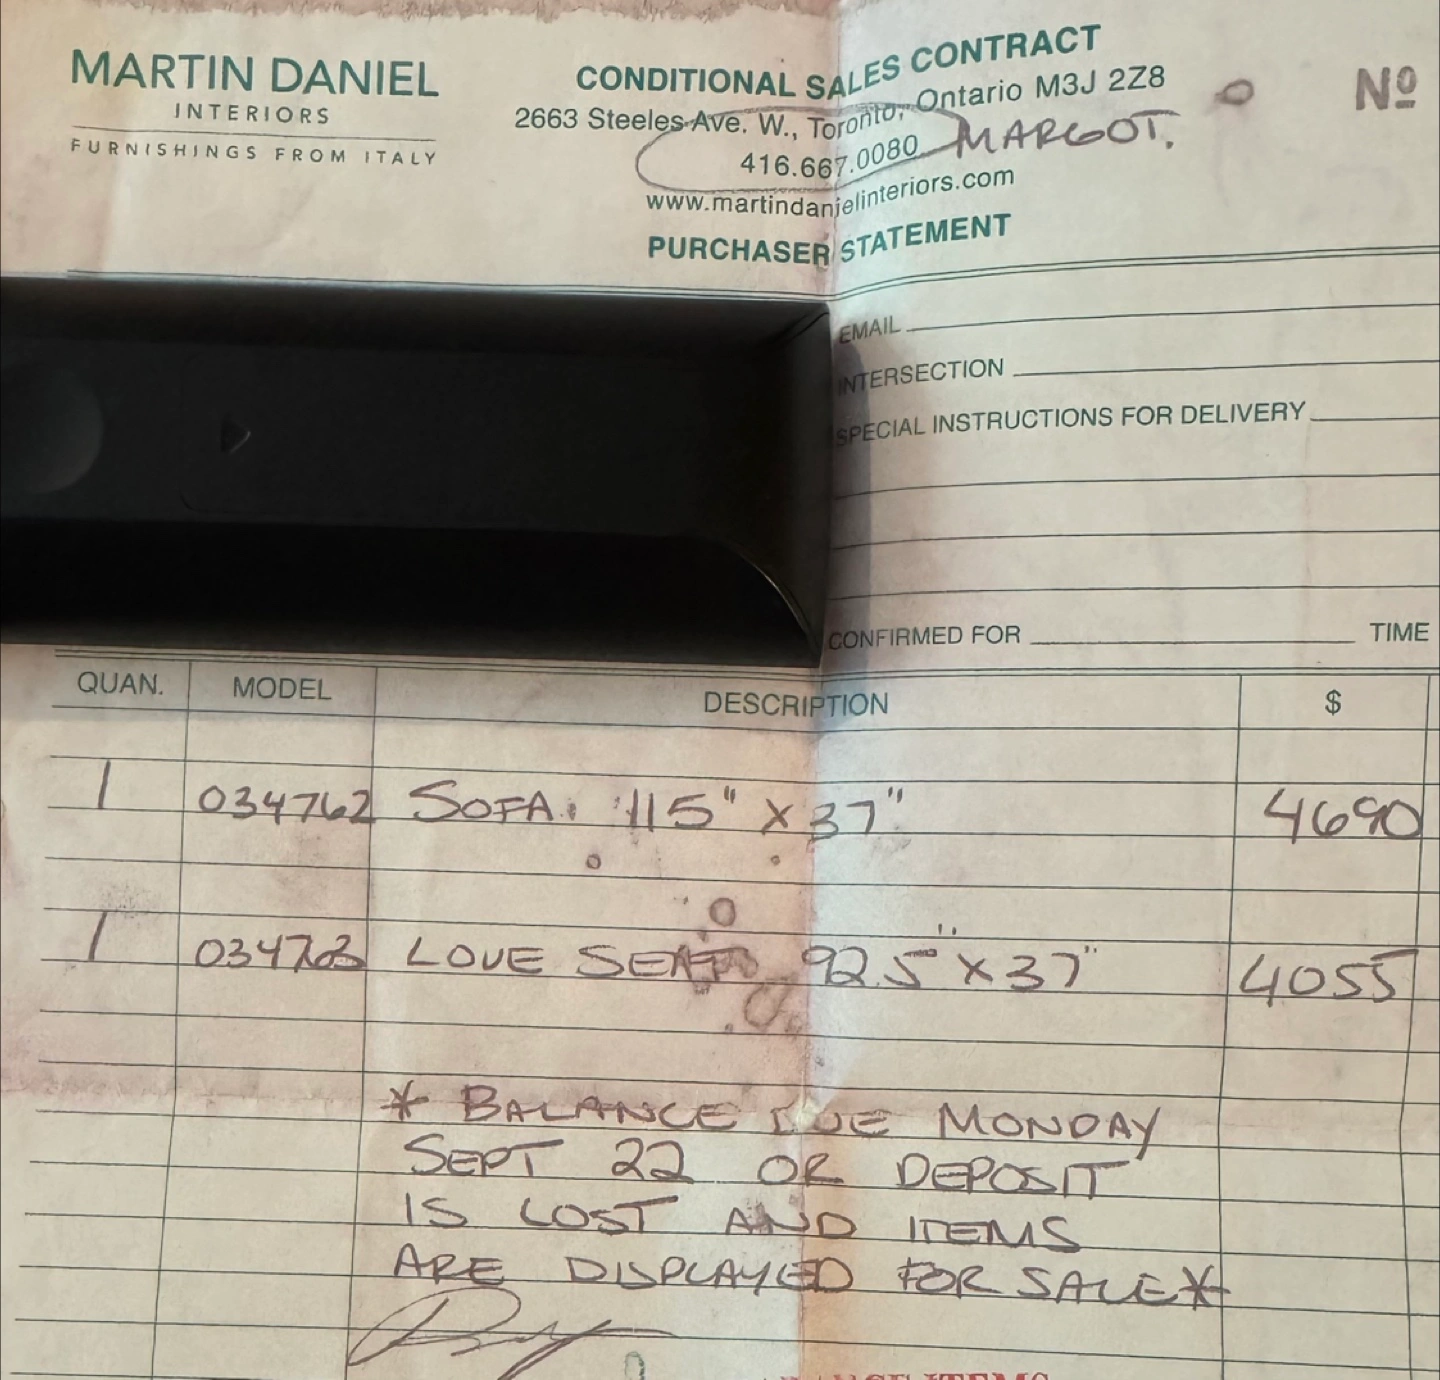 MARTIN DANIEL
INTERIORS
FURNISHINGS FROM ITALY
CONDITIONAL SALES CONTRACT
2663 Steeles Ave. W., Toronto, Ontario M3J 2Z8
416.667.0080 MARGOT.
www.martindanielinteriors.com
PURCHASER STATEMENT
Nº
EMAIL
INTERSECTION
SPECIAL INSTRUCTIONS FOR DELIVERY
CONFIRMED FOR TIME
QUAN. MODEL DESCRIPTION $
1 034762 SOFA: 115" X 37" 4690
1 034763 LOVE SEAT 92.5" X 37" 4055
* BALANCE DUE MONDAY
SEPT 22 OR DEPOSIT
IS LOST AND ITEMS
ARE DISPLAYED FOR SALE *
ITEMS